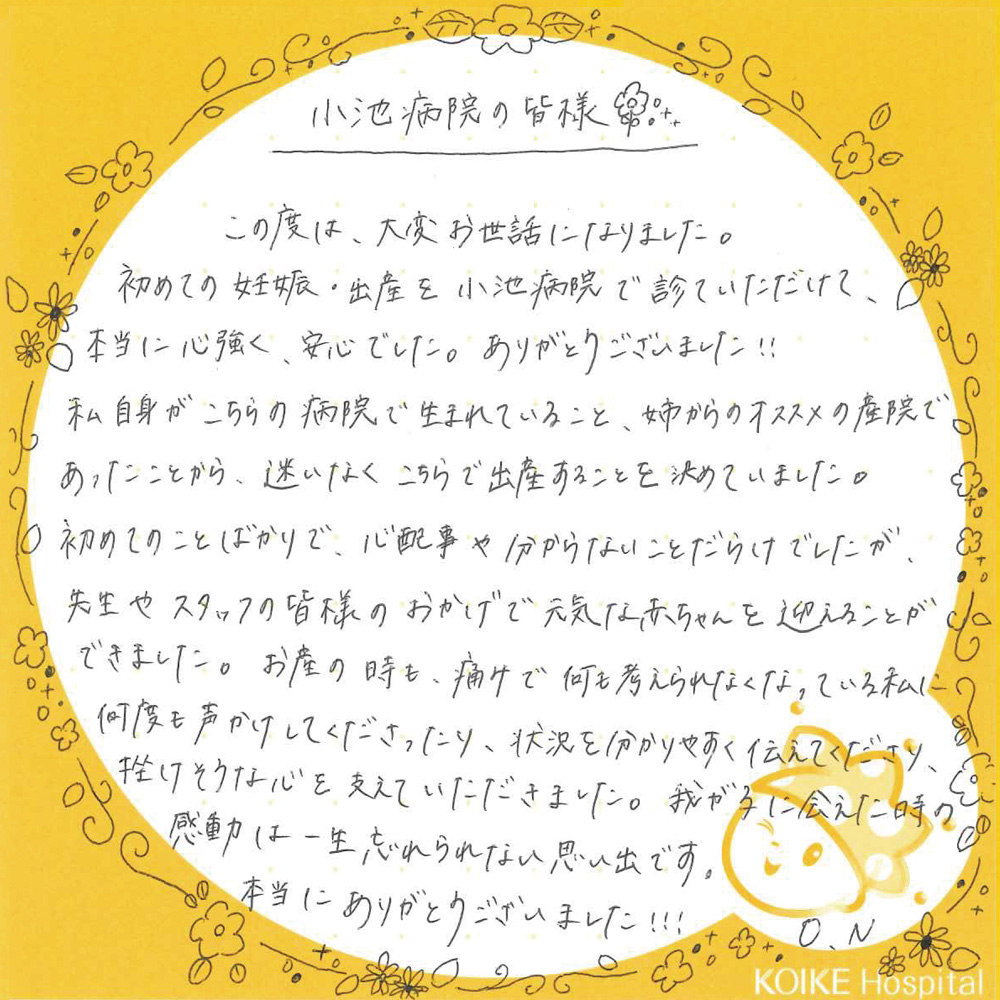 小池病院の皆様
この度は、大変お世話になりました。
初めての妊娠・出産を小池病院で診ていただけて、
本当に心強く、安心でした。ありがとうございました!!
私自身がこちらの病院で生まれていること、姉からのオススメの産院で
あったことから、迷いなくこちらで出産することを決めていました。
初めてのことばかりで、心配事や分からないことだらけでしたが、
先生やスタッフの皆様のおかげで元気な赤ちゃんを迎えることが
できました。お産の時も、痛みで何も考えられなくなっている私に
何度も声かけしてくださったり、状況を分かりやすく伝えてくださり、
挫けそうな心を支えていただきました。我が子に会えた時の
感動は一生忘れられない思い出です。
本当にありがとうございました!!!
O.N
KOIKE Hospital